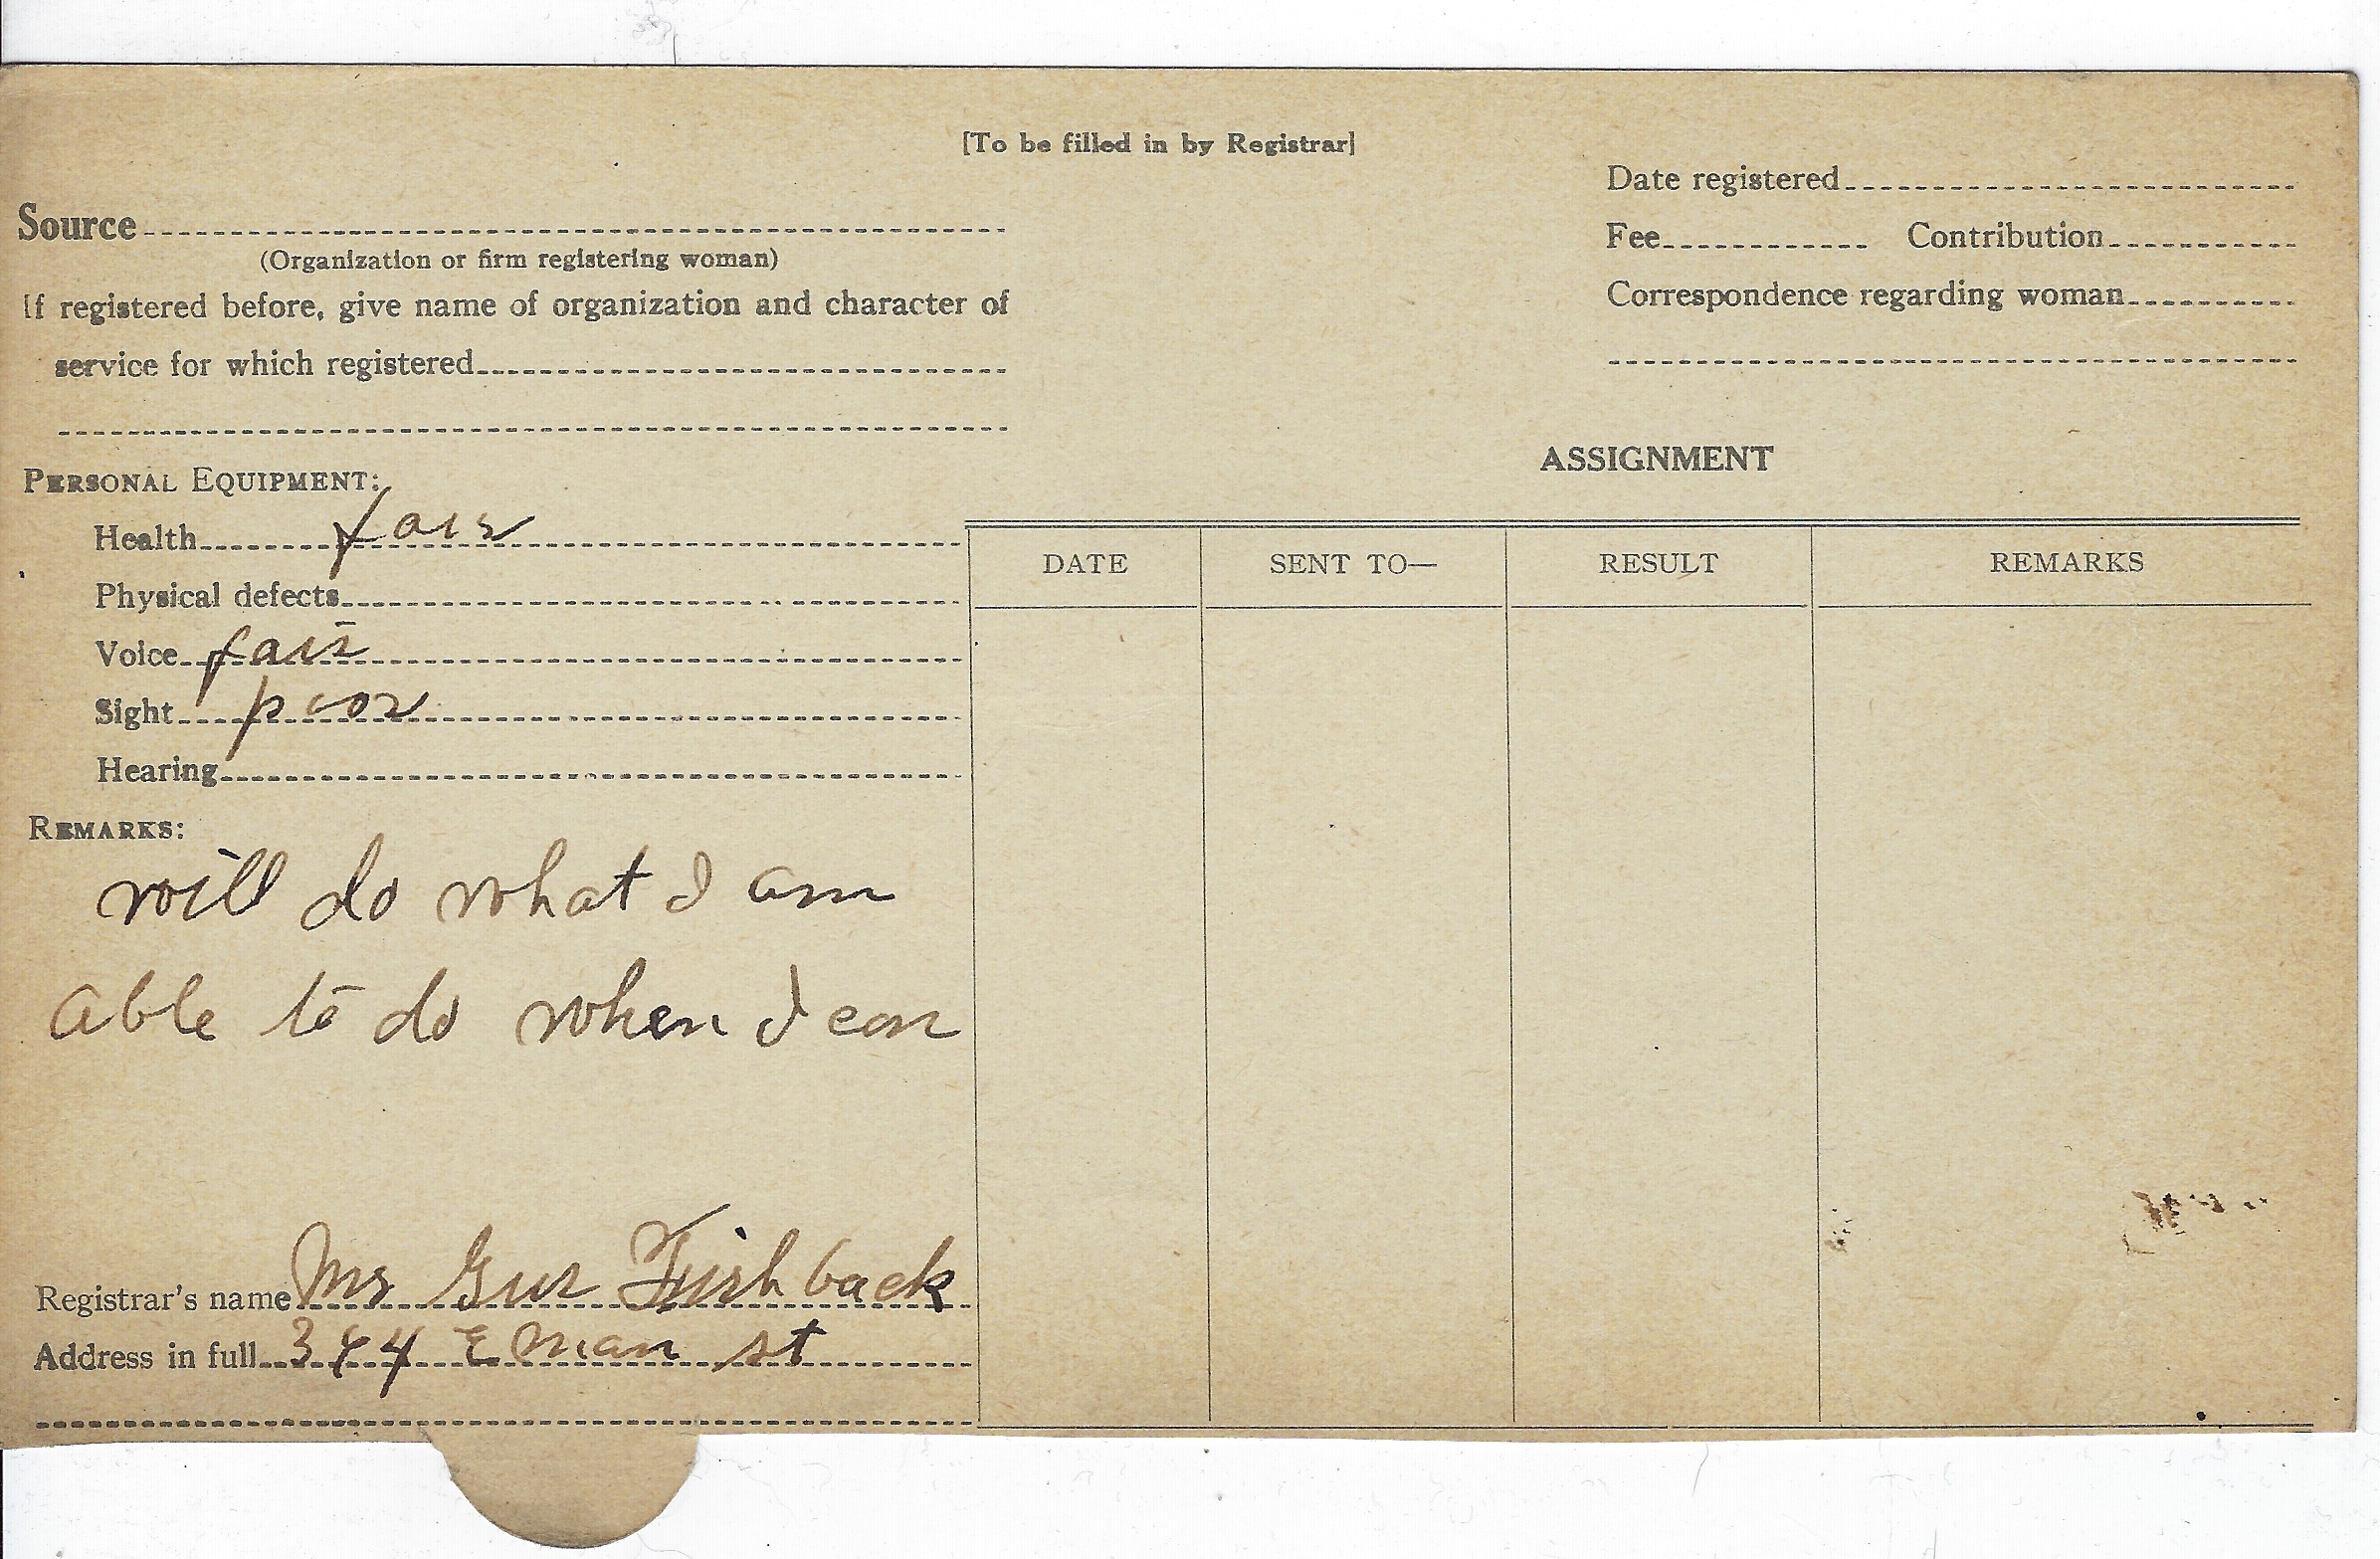 [To be filled in by Registrar]
Date registered
Source
Fee Contribution
(Organization or firm registering woman)
Correspondence regarding woman
If registered before, give name of organization and character of
service for which registered
ASSIGNMENT
PERSONAL EQUIPMENT:
Health fair
DATE SENT TO— RESULT REMARKS
Physical defects
Voice fair
Sight poor
Hearing
REMARKS:
will do what I am
able to do when I can
Registrar's name Mrs Gus Fishback
Address in full E Man st